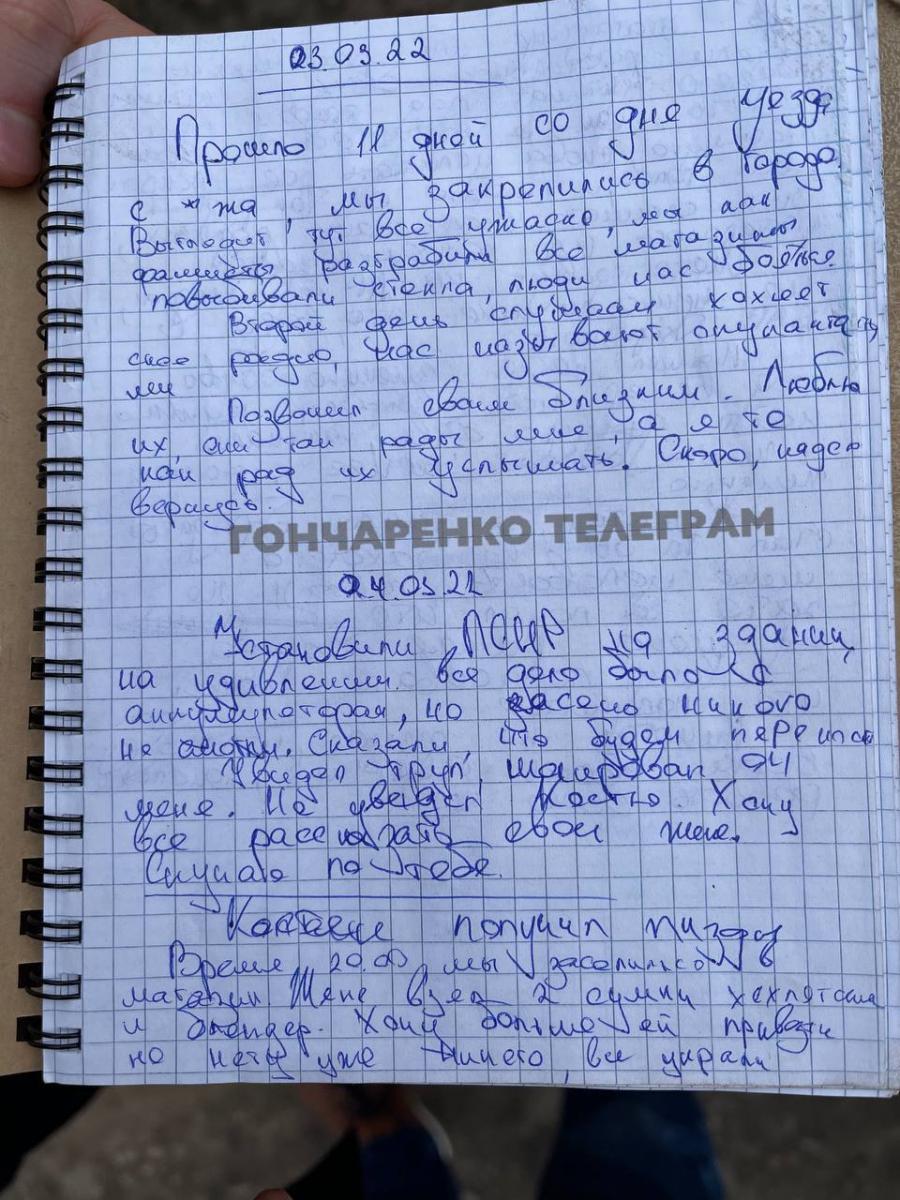 03.03.22
Прошло 11 дней со дня уезда
с *жа, мы закрепились в городе
Выглядит тут все ужасно, мы как
фашисты разграбили все магазины
повыбивали стекла, люди нас бояться
Второй день слушаем хохлет
свое радио, нас называют окупанта
ми
Позвонил своим близким. Люблю
их, они так рады мне, а я то
как рад их услышать. Скоро, надею
вернусь.
ГОНЧАРЕНКО ТЕЛЕГРАМ
04.03.22
Установили ПСНР на здании,
на удивлении все дело было в
аккумуляторах, но засекли никого
не смогли. Сказали, что будем
Увидел труп,
меня. Не увидел Костю. Хочу
все рассказать своей жене.
Скучаю по тебе.
получил пизды
Время 20.00, мы заселились в
магазин Жене взял 2 сумки
и блендер. Хочу больше ей привезти
но нету уже ничего, все украли